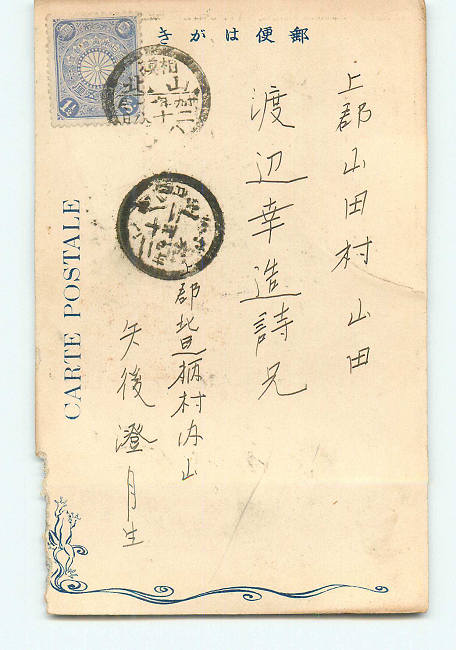 きがは便郵
上郡山田村山田
渡辺幸造詩兄
上郡北足柄村内山
矢後澄月生
CARTE POSTALE
相模
山北